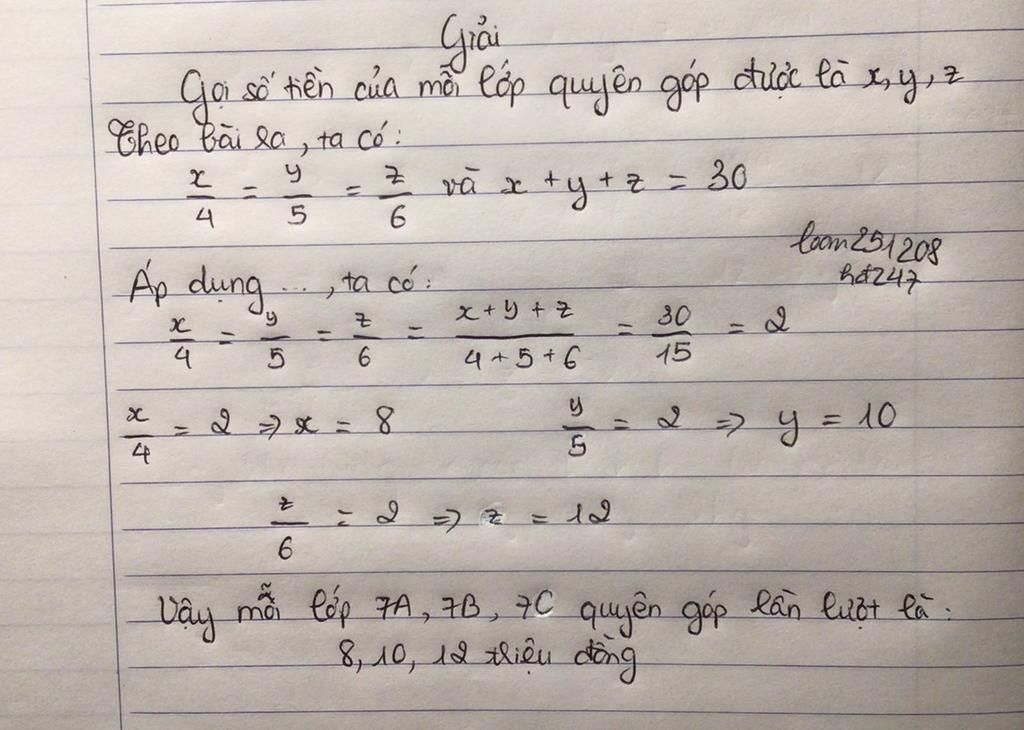 Giải
Gọi số tiền của mỗi lớp quyên góp được là x, y, z
Theo bài ra, ta có:
x/4 = y/5 = z/6 và x + y + z = 30
loan251208
hd247
Áp dụng ..., ta có:
x/4 = y/5 = z/6 = (x + y + z)/(4 + 5 + 6) = 30/15 = 2
x/4 = 2 => x = 8 y/5 = 2 => y = 10
z/6 = 2 => z = 12
Vậy mỗi lớp 7A, 7B, 7C quyên góp lần lượt là:
8, 10, 12 triệu đồng